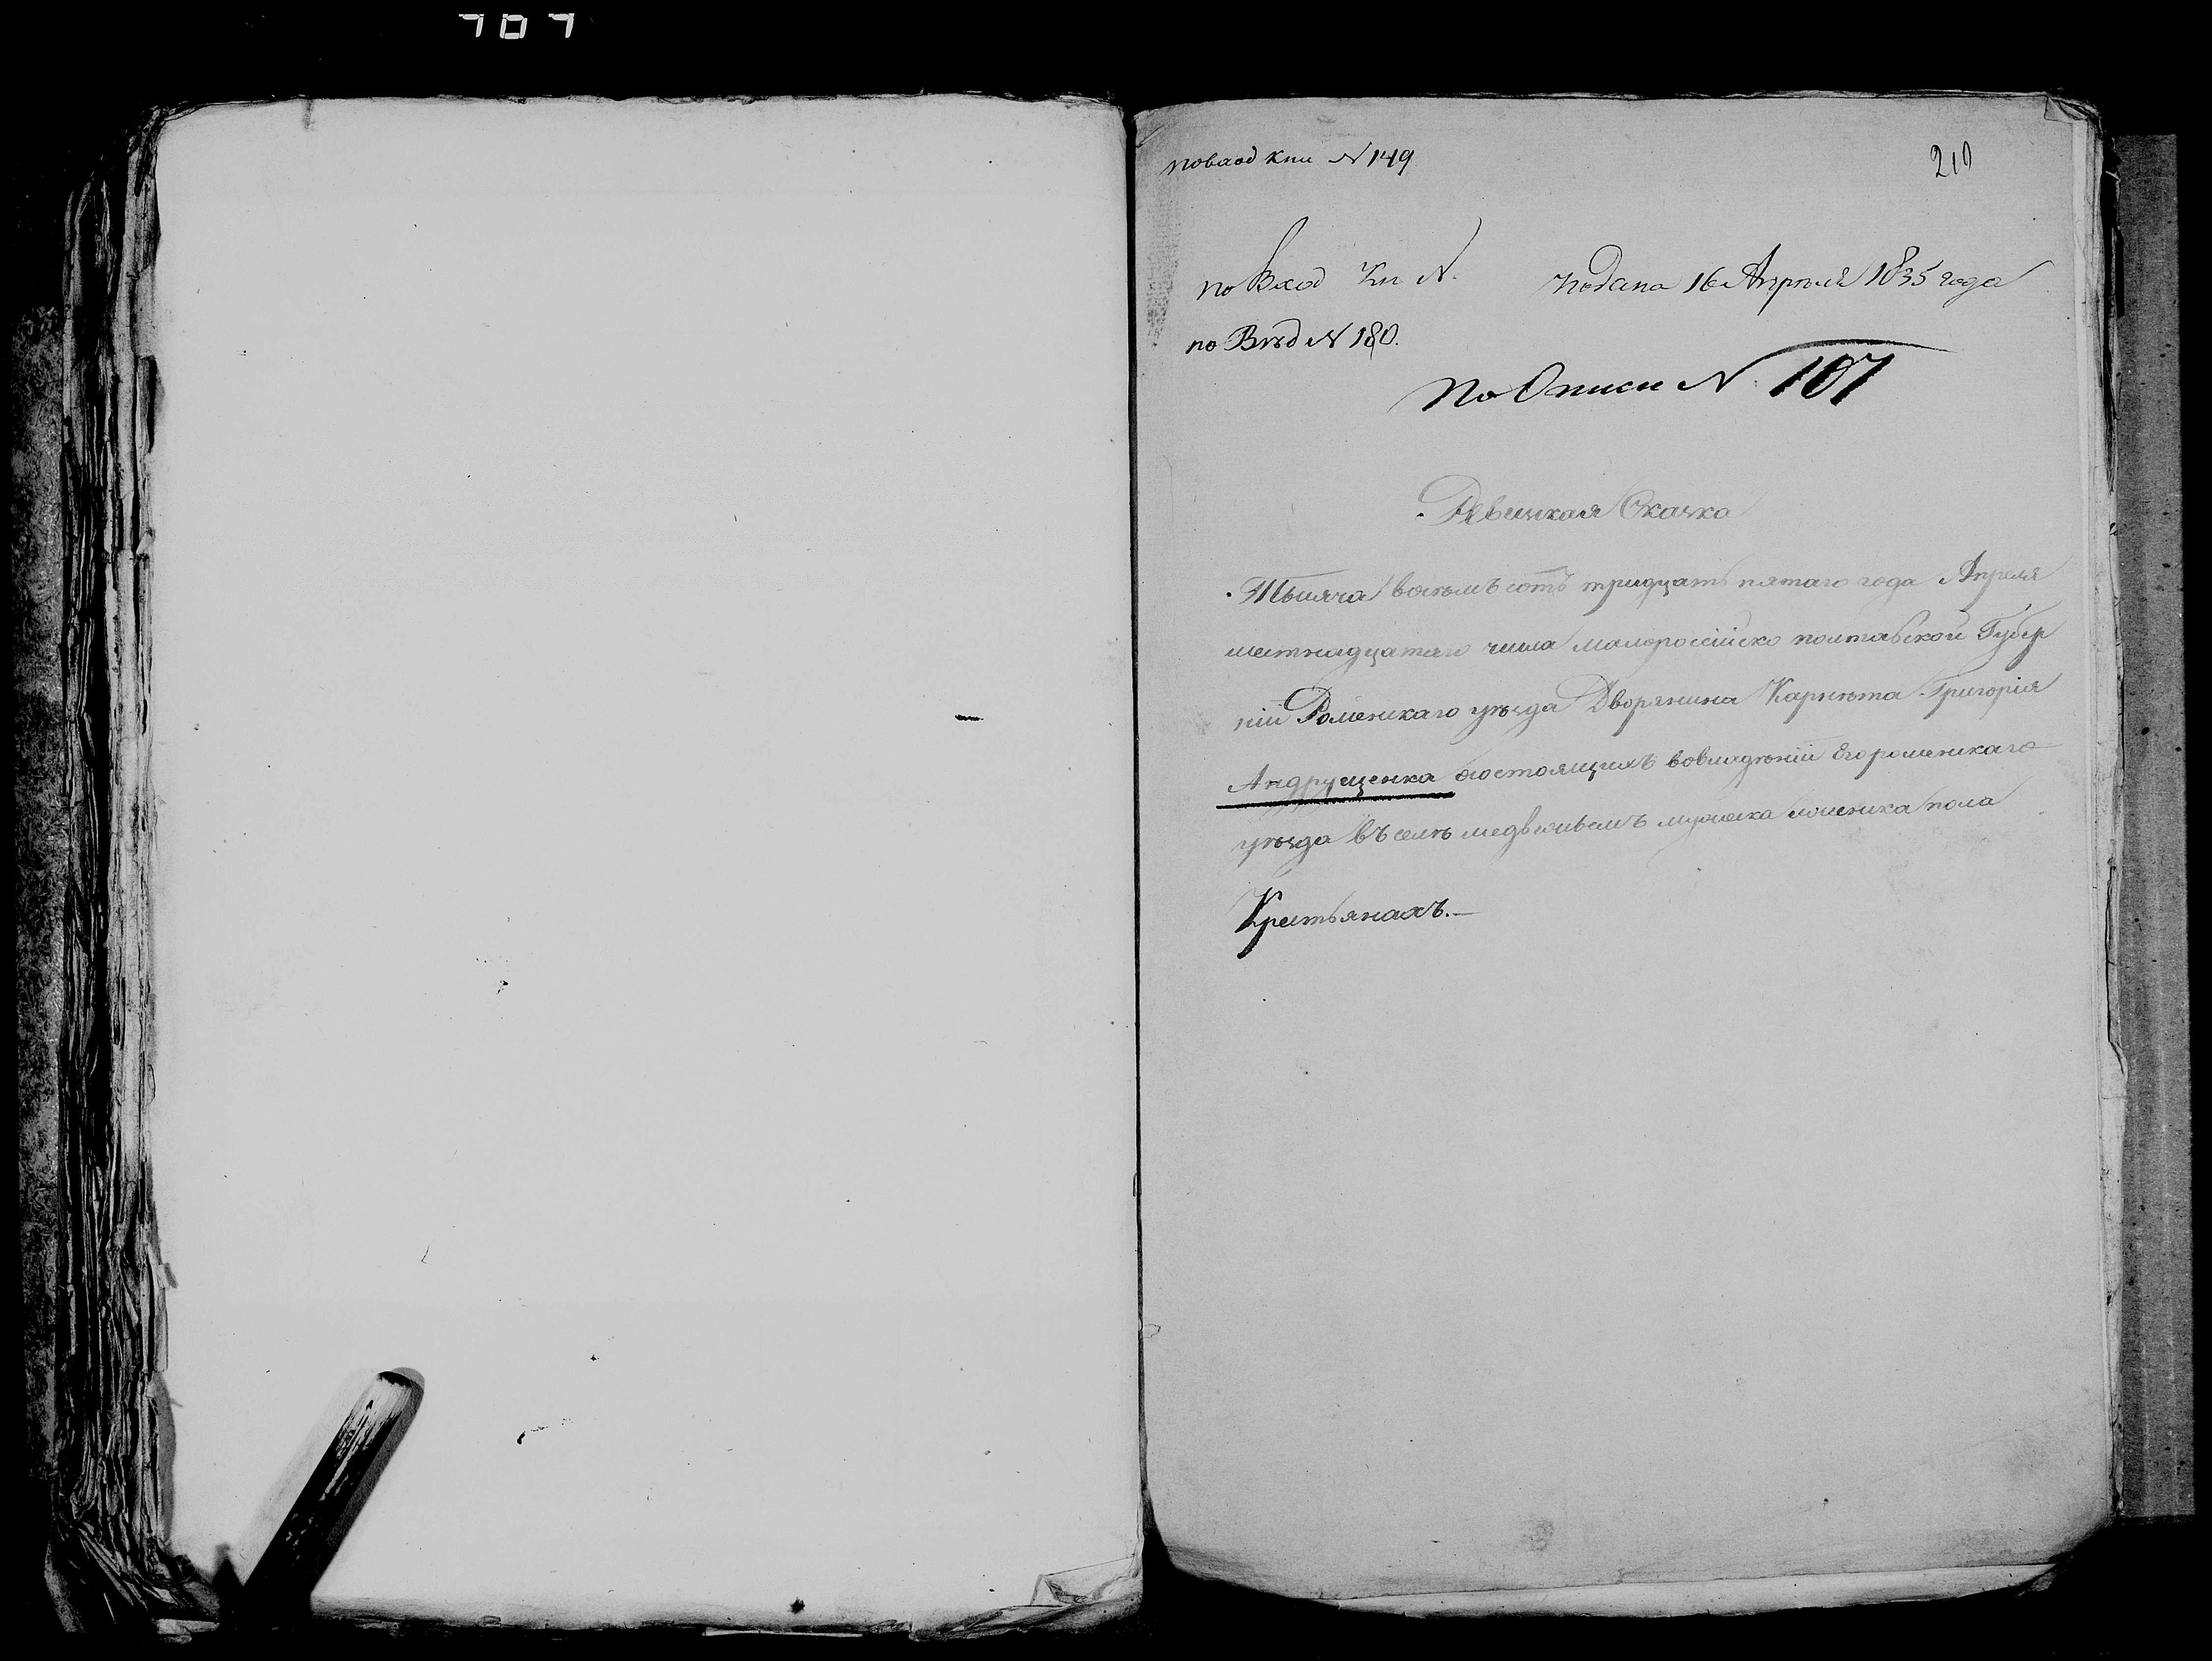 707
повход кни № 149
210
по Вход Кн №.
подана 16 Апреля 1835 года
по Вѣд № 180.
по Описи № 107
Ревизкая Скаска
Тысяча восемъ сотъ тридцать пятаго года Апреля
шестнадцатаго числа малороссійско полтавской Губер
ніи Роменскаго уезда Дворянина Карнета Григорія
Андрущенка состоящихъ вовладѣніи Егороменскаго
уезда въ селѣ медвежьемъ мужеска иженска пола
Крестьянахъ.—